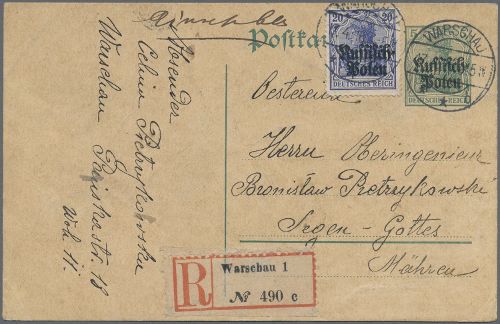 Einschreiben
Postkarte
20 20
Russisch-
Polen
DEUTSCHES REICH
5
Russisch-
Polen
DEUTSCHES REICH
WARSCHAU
Absender
Celina Pietrzykowska
Warschau
Woh. 11.
Oesterreich
Herrn Oberingenieur
Bronisław Pietrzykowski
Segen-Gottes
Mähren
R
Warschau 1
№ 490 c